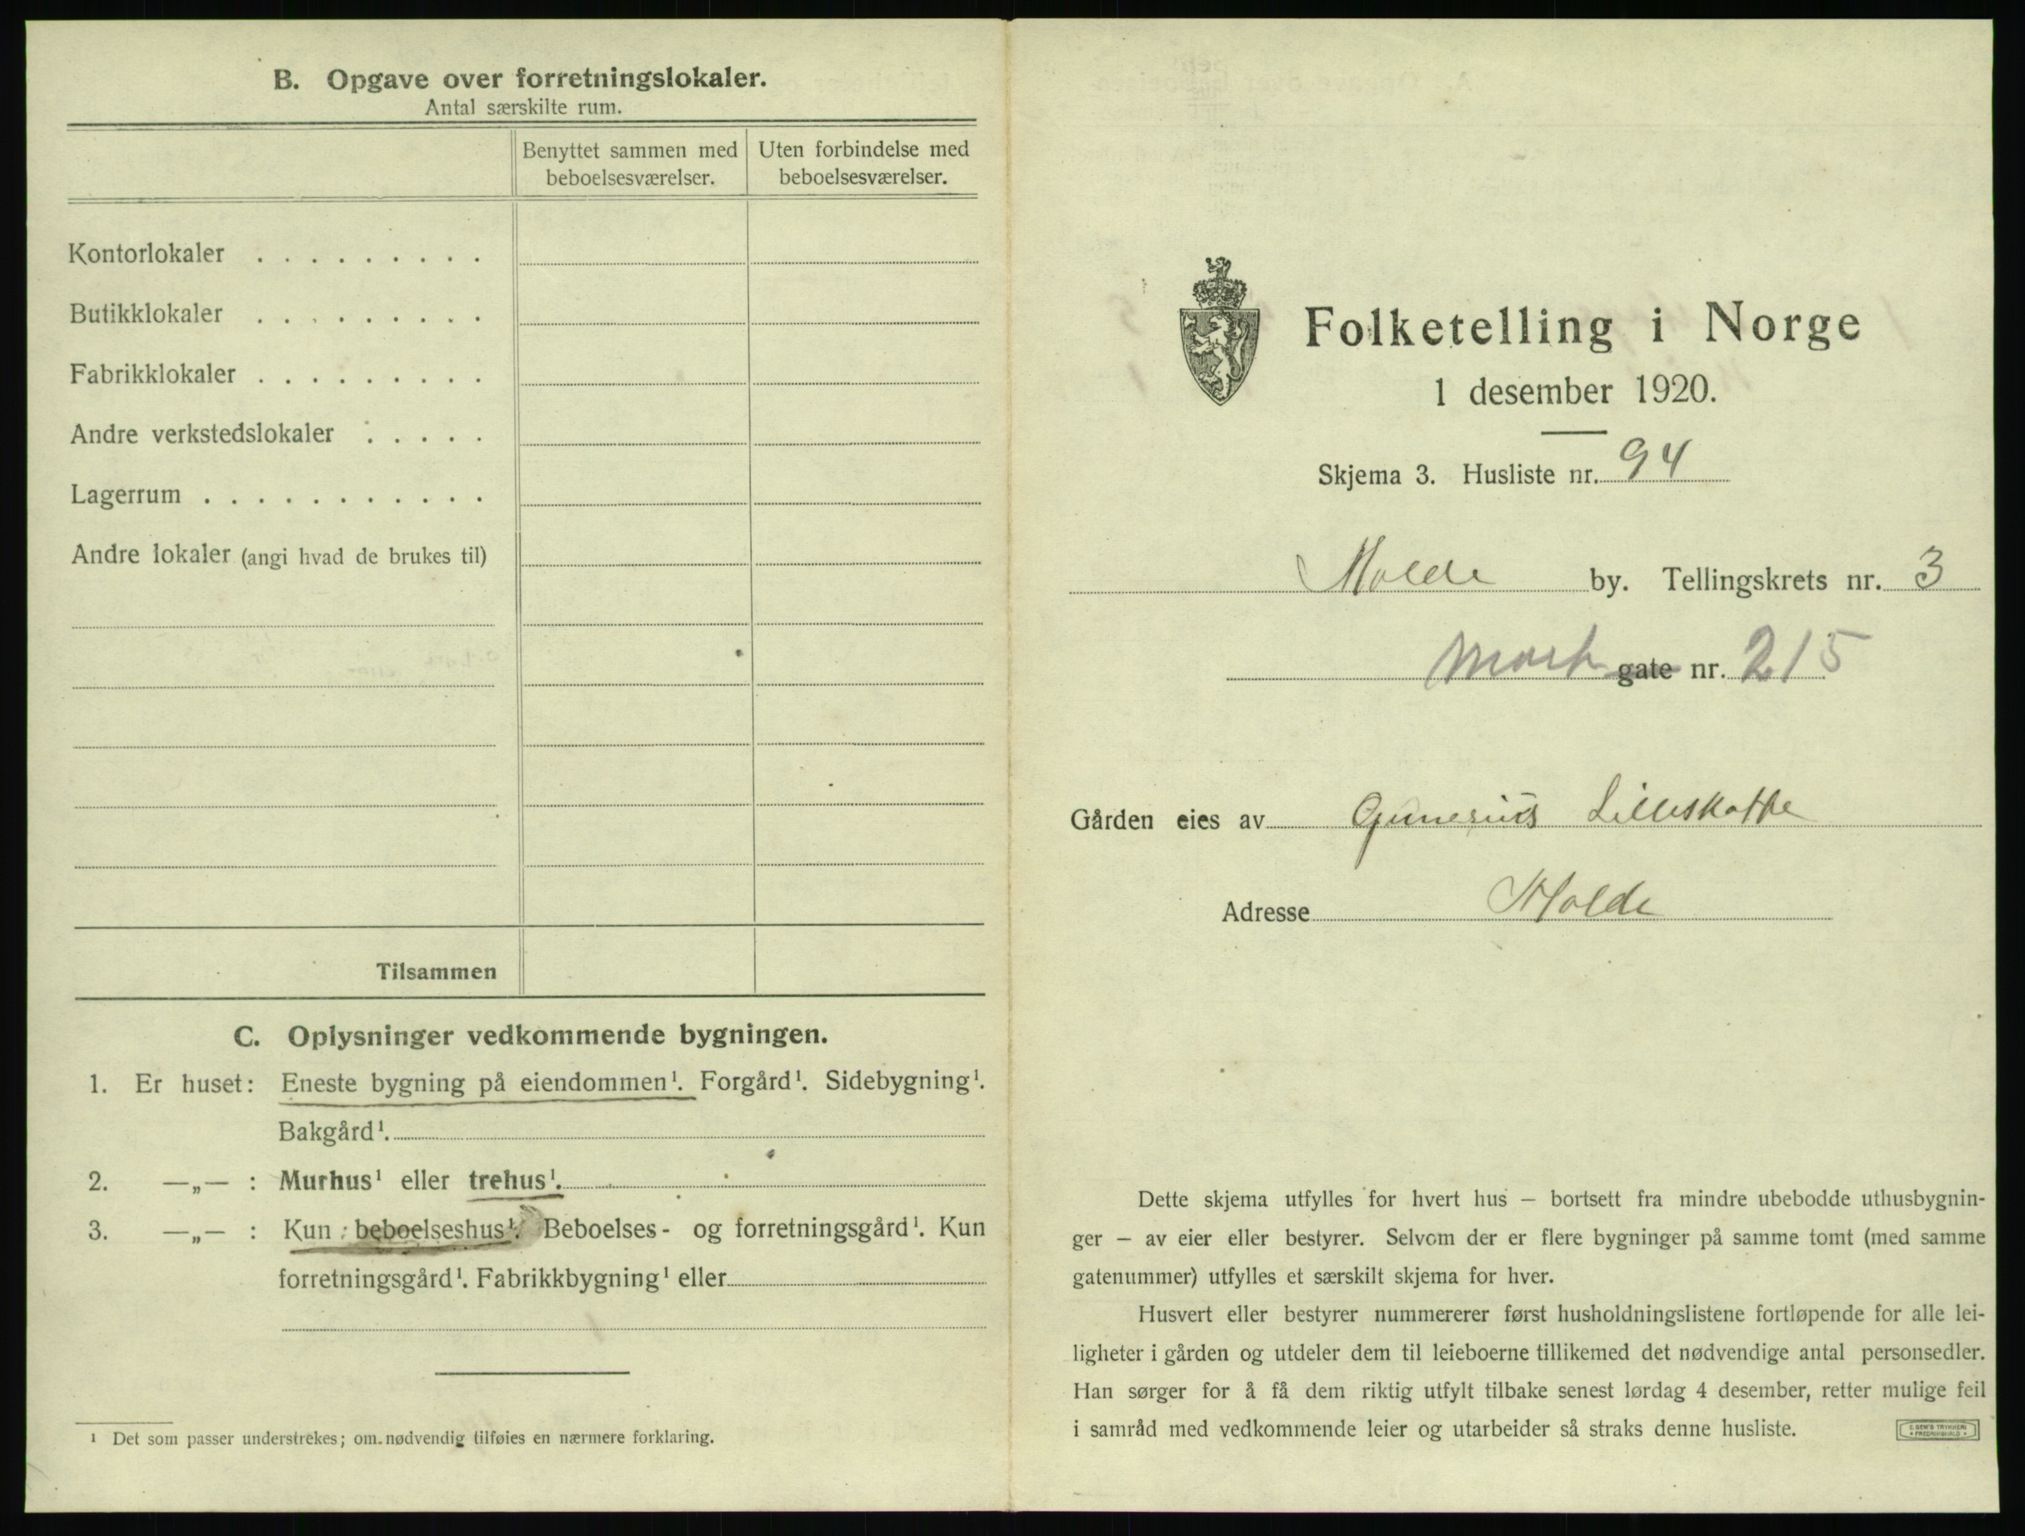 B. Opgave over forretningslokaler.
Antal særskilte rum.
Benyttet sammen med beboelsesværelser.
Uten forbindelse med beboelsesværelser.
Kontorlokaler . . . . . . . . .
Butikklokaler . . . . . . . . .
Fabrikklokaler . . . . . . . . .
Andre verkstedslokaler . . . . .
Lagerrum . . . . . . . . . . .
Andre lokaler (angi hvad de brukes til)
Tilsammen
C. Oplysninger vedkommende bygningen.
1. Er huset: Eneste bygning på eiendommen¹. Forgård¹. Sidebygning¹.
Bakgård¹.
2. —„— : Murhus¹ eller trehus¹.
3. —„— : Kun beboelseshus¹. Beboelses- og forretningsgård¹. Kun
forretningsgård¹. Fabrikkbygning¹ eller
¹ Det som passer understrekes; om nødvendig tilføies en nærmere forklaring.
Folketelling i Norge
1 desember 1920.
Skjema 3. Husliste nr. 94
Molde by. Tellingskrets nr. 3
gate nr. 215
Gården eies av Gunerius
Adresse Molde
Dette skjema utfylles for hvert hus – bortsett fra mindre ubebodde uthusbygnin-
ger – av eier eller bestyrer. Selvom der er flere bygninger på samme tomt (med samme
gatenummer) utfylles et særskilt skjema for hver.
Husvert eller bestyrer nummererer først husholdningslistene fortløpende for alle lei-
ligheter i gården og utdeler dem til leieboerne tillikemed det nødvendige antal personsedler.
Han sørger for å få dem riktig utfylt tilbake senest lørdag 4 desember, retter mulige feil
i samråd med vedkommende leier og utarbeider så straks denne husliste.